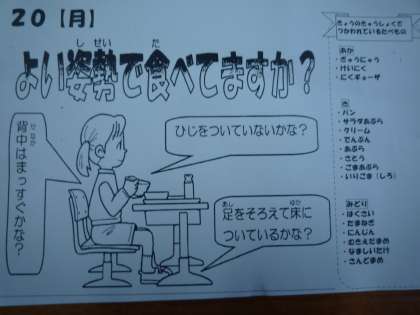 20【月】
し せい た
よい姿勢で食べてますか？
せ なか
背中はまっすぐかな？
ひじをついていないかな？
あし ゆか
足をそろえて床に
ついているかな？
きょうのきゅうしょくで
つかわれているたべもの
あか
・ぎゅうにゅう
・けいにく
・にくギョーザ
き
・パン
・サラダあぶら
・クリーム
・でんぷん
・あぶら
・さとう
・ごまあぶら
・いりごま（しろ）
みどり
・はくさい
・たまねぎ
・にんじん
・むきえだまめ
・なましいたけ
・さんどまめ